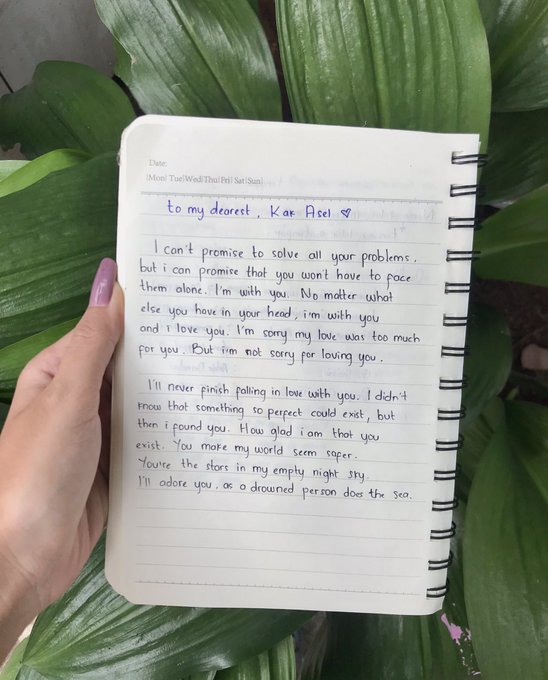 Date:
|Mon| Tue|Wed|Thu|Fri| Sat|Sun|
to my dearest, Kak Asel ♡
I can't promise to solve all your problems,
but i can promise that you won't have to face
them alone. I'm with you. No matter what
else you have in your head, i'm with you
and i love you. I'm sorry my love was too much
for you. But i'm not sorry for loving you.
I'll never finish falling in love with you. I didn't
know that something so perfect could exist, but
then i found you. How glad i am that you
exist. You make my world seem safer.
You're the stars in my empty night sky.
I'll adore you, as a drowned person does the sea.